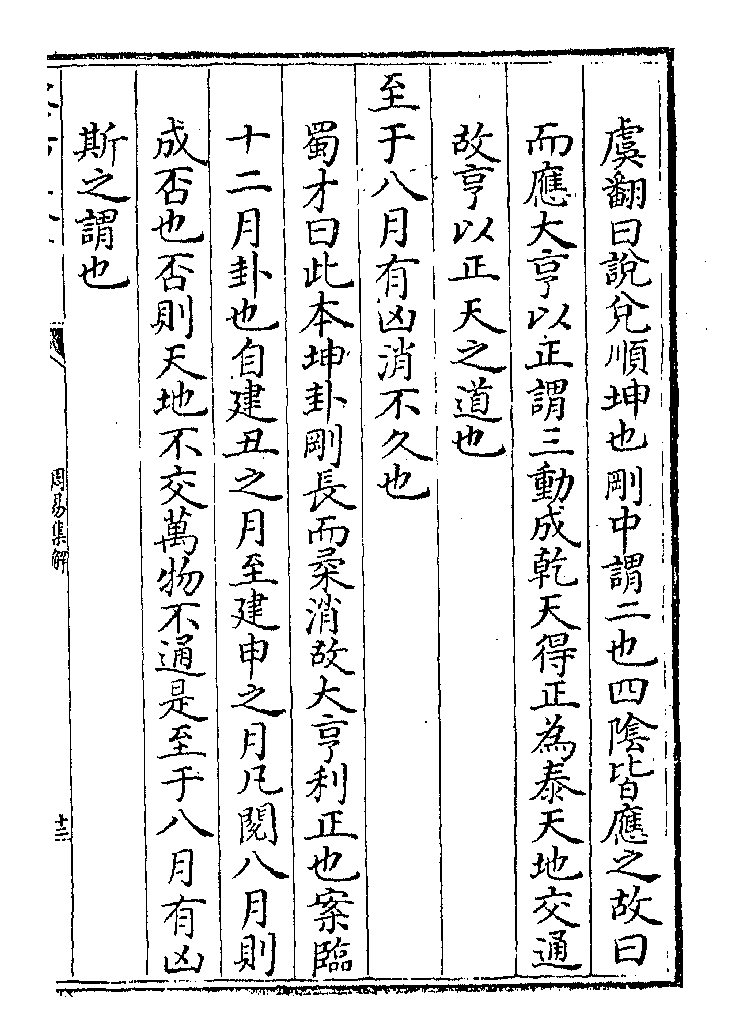 虞翻曰說兌順坤也剛中謂二也四陰皆應之故曰
而應大亨以正謂三動成乾天得正為泰天地交通
故亨以正天之道也
至于八月有凶消不久也
蜀才曰此本坤卦剛長而柔消故大亨利正也案臨
十二月卦也自建丑之月至建申之月凡閱八月則
成否也否則天地不交萬物不通是至于八月有凶
斯之謂也
周易集解
十二